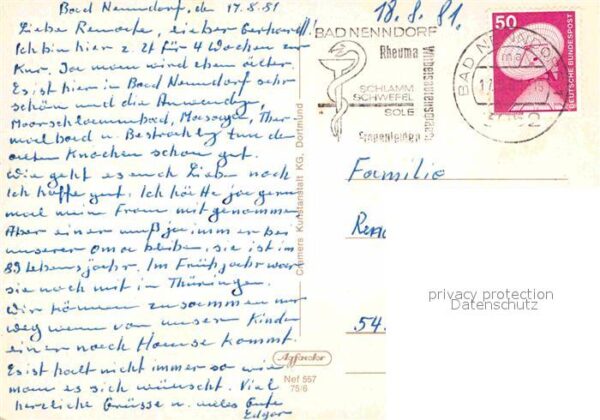 Bad Nenndorf, den 17.8.81
Liebe Renate, lieber Gerhard!
Ich bin hier z. Zt für 4 Wochen zur
Kur. Ja man wird eben älter.
Es ist hier in Bad Nenndorf sehr
schön und die Anwendg,
Moorschlammbad, Massage, Ther-
malbad u Bestrahlg tun den
alten Knochen schon gut.
Wie geht es euch Lieben noch
Ich hoffe gut. Ich hätte ja gern
mal meine Frau mitgenommen
Aber einer muß ja immer bei
unserer Oma bleiben, sie ist im
89 Lebensjahr. Im Frühjahr war
sie noch mit in Thüringen.
Wir können zusammen nur
weg wenn von unseren Kinder
einer nach Hause kommt.
Es ist halt nicht immer so wie
man es sich wünscht. Viel
herzliche Grüsse u. alles Gute
Edgar
18.8.81.
BAD NENNDORF
Rheuma
SCHLAMM
SCHWEFEL
SOLE
Niedersächsisches Staatsbad
BAD NENNDORF
50
DEUTSCHE BUNDESPOST
Familie
Rena
54.
Cramers Kunstanstalt KG, Dortmund
Agfacolor
Nef 557
75/6
privacy protection
Datenschutz